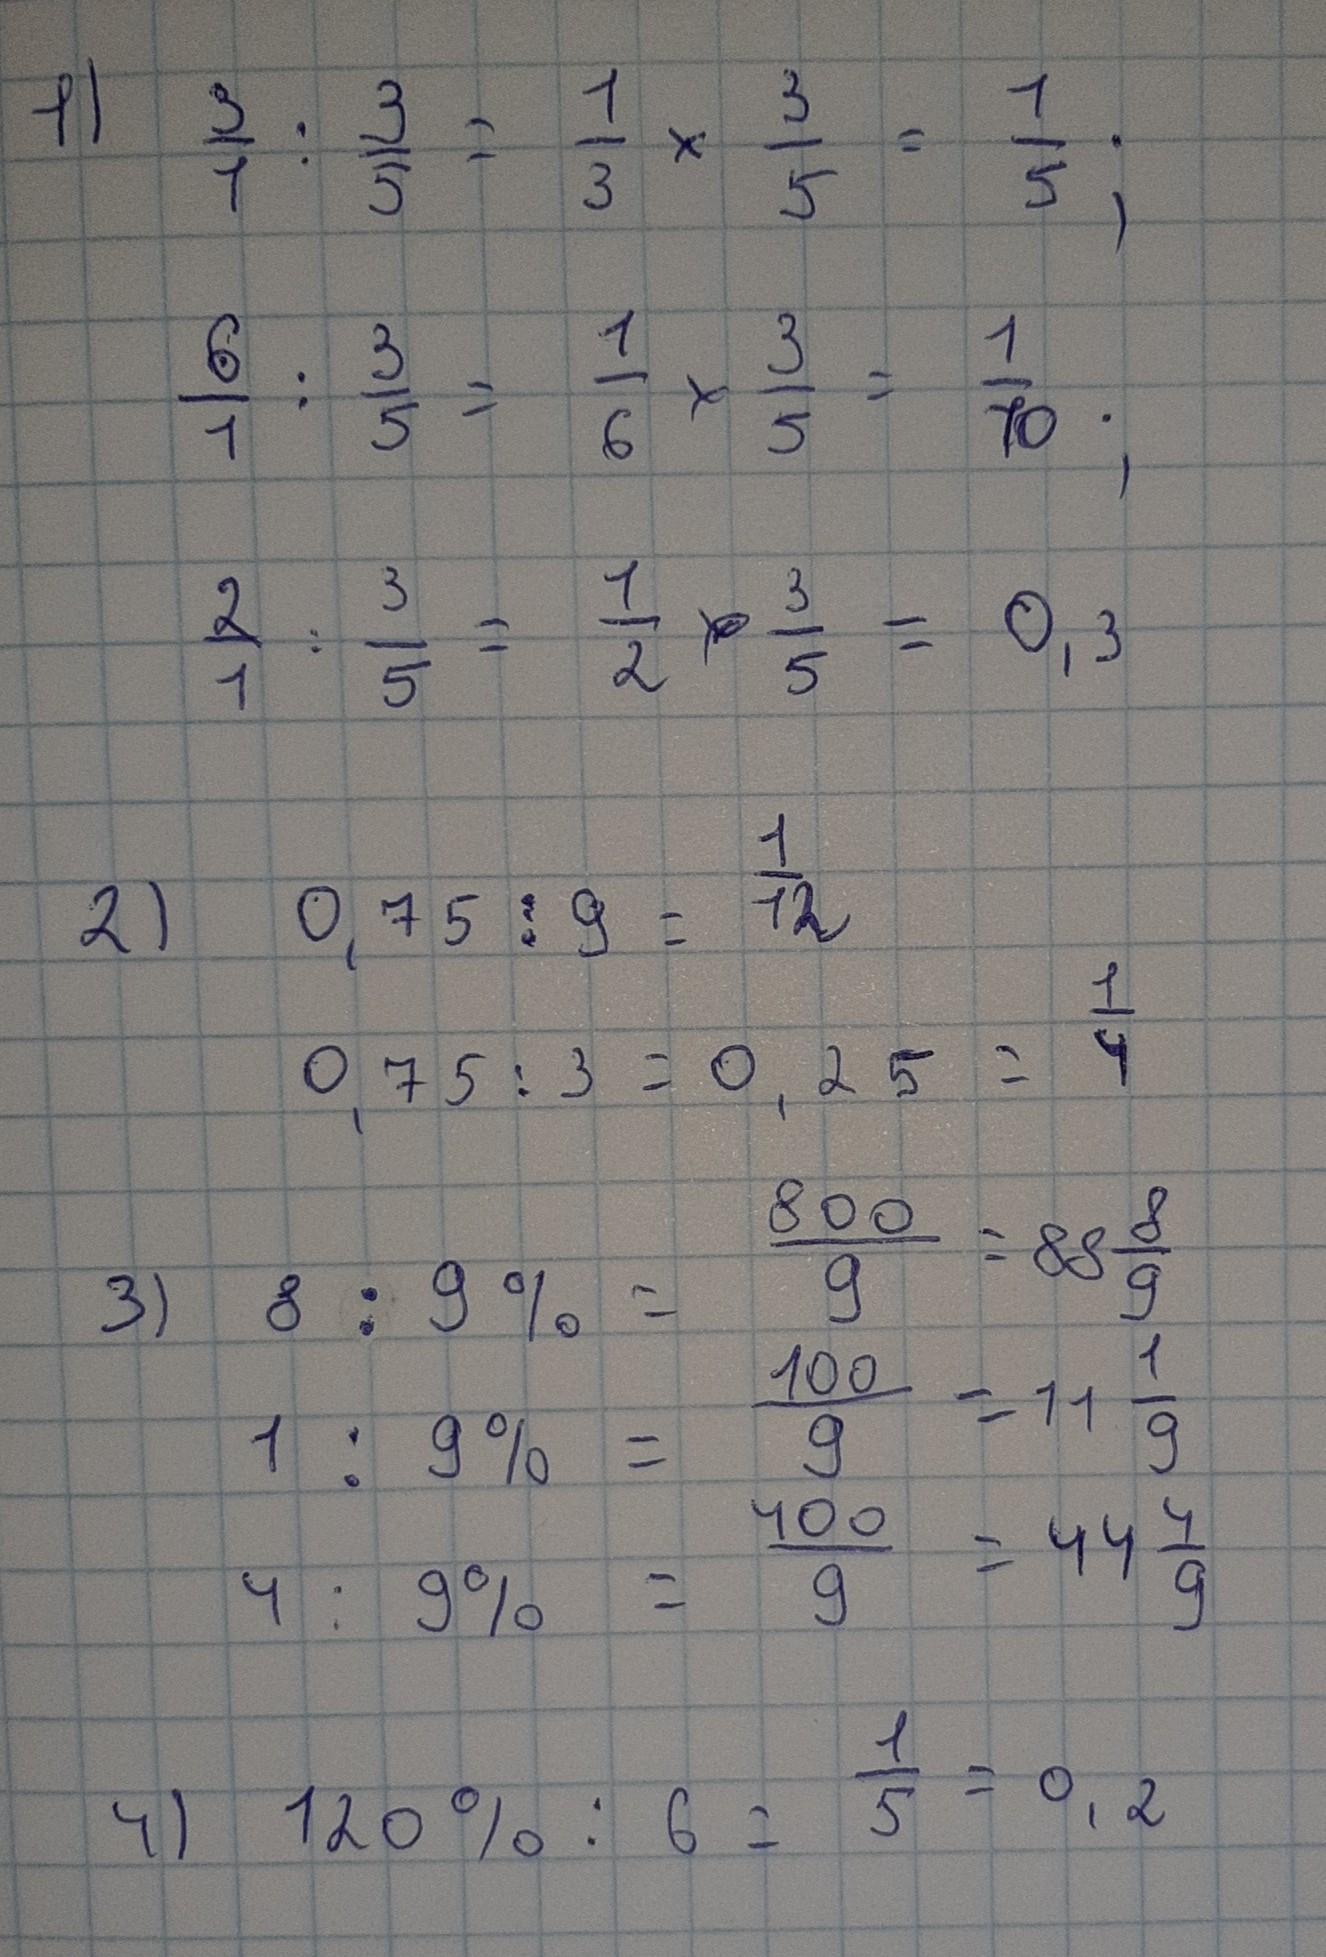 1) 3/1 : 3/5 = 1/3 × 3/5 = 1/5;
6/1 : 3/5 = 1/6 × 3/5 = 1/10;
2/1 : 3/5 = 1/2 × 3/5 = 0,3
2) 0,75 : 9 = 1/12
0,75 : 3 = 0,25 = 1/4
3) 8 : 9% = 800/9 = 88 8/9
1 : 9% = 100/9 = 11 1/9
4 : 9% = 400/9 = 44 4/9
4) 120% : 6 = 1/5 = 0,2